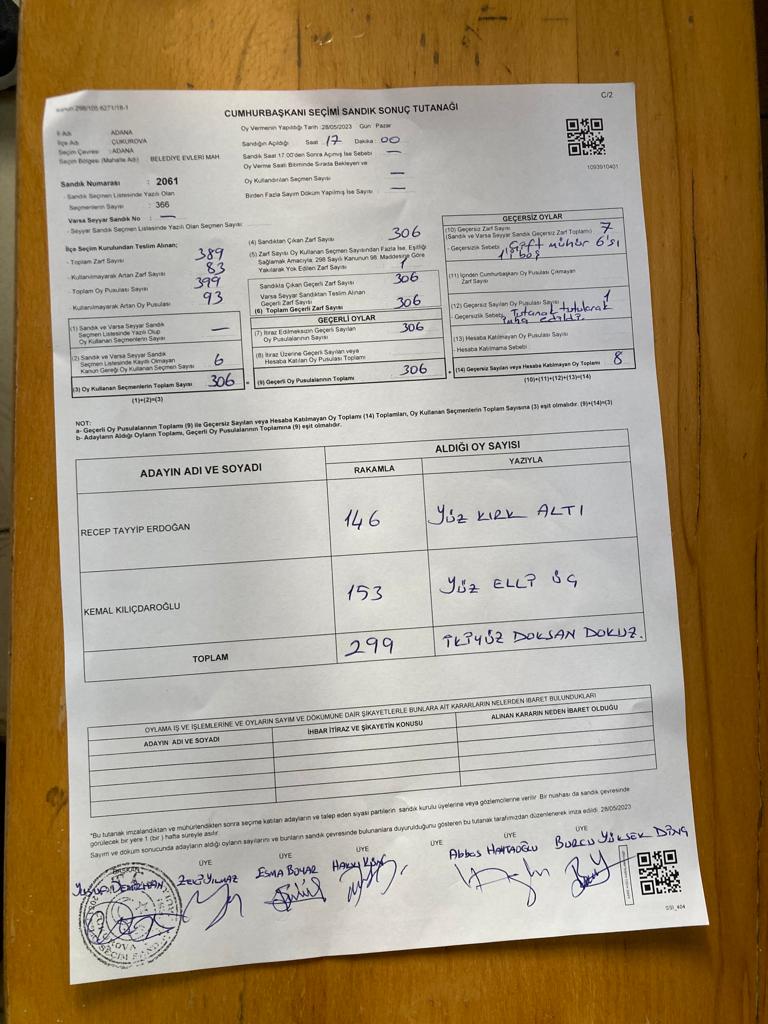 C/2
CUMHURBAŞKANI SEÇİMİ SANDIK SONUÇ TUTANAĞI
İl Adı : ADANA
İlçe Adı : ÇUKUROVA
Seçim Çevresi : ADANA
Seçim Bölgesi (Mahalle Adı) : BELEDİYE EVLERİ MAH.
Sandık Numarası : 2061
- Sandık Seçmen Listesinde Yazılı Olan
Seçmenlerin Sayısı : 366
Varsa Seyyar Sandık No : —
- Seyyar Sandık Seçmen Listesinde Yazılı Olan Seçmen Sayısı :
Oy Vermenin Yapıldığı Tarih : 28/05/2023 Gün : Pazar
Sandığın Açıldığı Saat : 17 Dakika : 00
Sandık Saat 17.00'den Sonra Açılmış İse Sebebi : —
Oy Verme Saati Bitiminde Sırada Bekleyen ve
Oy Kullandırılan Seçmen Sayısı : —
Birden Fazla Sayım Döküm Yapılmış İse Sayısı : —
1093910401
İlçe Seçim Kurulundan Teslim Alınan;
- Toplam Zarf Sayısı : 389
- Kullanılmayarak Artan Zarf Sayısı : 83
- Toplam Oy Pusulası Sayısı : 399
- Kullanılmayarak Artan Oy Pusulası : 93
(1) Sandık ve Varsa Seyyar Sandık
Seçmen Listesinde Yazılı Olup
Oy Kullanan Seçmenlerin Sayısı —
(2) Sandık ve Varsa Seyyar Sandık
Seçmen Listesinde Kayıtlı Olmayan
Kanun Gereği Oy Kullanan Seçmen Sayısı 6
(3) Oy Kullanan Seçmenlerin Toplam Sayısı 306
(1)+(2)=(3)
(4) Sandıktan Çıkan Zarf Sayısı : 306
(5) Zarf Sayısı Oy Kullanan Seçmen Sayısından Fazla İse, Eşitliği
Sağlamak Amacıyla; 298 Sayılı Kanunun 98. Maddesine Göre
Yakılarak Yok Edilen Zarf Sayısı : 1
Sandıkta Çıkan Geçerli Zarf Sayısı : 306
Varsa Seyyar Sandıktan Teslim Alınan
Geçerli Zarf Sayısı :
(6) Toplam Geçerli Zarf Sayısı : 306
GEÇERLİ OYLAR
(7) İtiraz Edilmeksizin Geçerli Sayılan
Oy Pusulalarının Sayısı : 306
(8) İtiraz Üzerine Geçerli Sayılan veya
Hesaba Katılan Oy Pusulası Toplamı :
= (9) Geçerli Oy Pusulalarının Toplamı : 306
GEÇERSİZ OYLAR
(10) Geçersiz Zarf Sayısı : 7
(Sandık ve Varsa Seyyar Sandık Geçersiz Zarf Toplamı)
- Geçersizlik Sebebi : Çift mühür 6'sı
1'i boş
(11) İçinden Cumhurbaşkanı Oy Pusulası Çıkmayan
Zarf Sayısı :
(12) Geçersiz Sayılan Oy Pusulası Sayısı : 1
- Geçersizlik Sebebi : Tutanak tutularak
imha edildi.
(13) Hesaba Katılmayan Oy Pusulası Sayısı :
- Hesaba Katılmama Sebebi :
+ (14) Geçersiz Sayılan veya Hesaba Katılmayan Oy Toplamı : 8
(10)+(11)+(12)+(13)=(14)
NOT:
a- Geçerli Oy Pusulalarının Toplamı (9) ile Geçersiz Sayılan veya Hesaba Katılmayan Oy Toplamı (14) Toplamları, Oy Kullanan Seçmenlerin Toplam Sayısına (3) eşit olmalıdır. (9)+(14)=(3)
b- Adayların Aldığı Oyların Toplamı, Geçerli Oy Pusulalarının Toplamına (9) eşit olmalıdır.
ADAYIN ADI VE SOYADI
ALDIĞI OY SAYISI
RAKAMLA YAZIYLA
RECEP TAYYİP ERDOĞAN 146 YÜZ KIRK ALTI
KEMAL KILIÇDAROĞLU 153 YÜZ ELLİ ÜÇ
TOPLAM 299 İKİYÜZ DOKSAN DOKUZ.
OYLAMA İŞ VE İŞLEMLERİNE VE OYLARIN SAYIM VE DÖKÜMÜNE DAİR ŞİKAYETLERLE BUNLARA AİT KARARLARIN NELERDEN İBARET BULUNDUKLARI
ADAYIN ADI VE SOYADI İHBAR İTİRAZ VE ŞİKAYETİN KONUSU ALINAN KARARIN NEDEN İBARET OLDUĞU
"Bu tutanak imzalandıktan ve mühürlendikten sonra seçime katılan adayların ve talep eden siyasi partilerin sandık kurulu üyelerine veya gözlemcilerine verilir. Bir nüshası da sandık çevresinde
görülecek bir yere 1 (bir) hafta süreyle asılır.
Sayım ve döküm sonucunda adayların aldığı oyların sayılarını ve bunların sandık çevresinde bulunanlara duyurulduğunu gösteren bu tutanak tarafımızdan düzenlenerek imza edildi. 28/05/2023
BAŞKAN ÜYE ÜYE ÜYE ÜYE ÜYE
Zeki YILMAZ ESMA BOYAR Abbas HAKTAOĞLU BURCU YÜKSEK DİNÇ
SSI_404